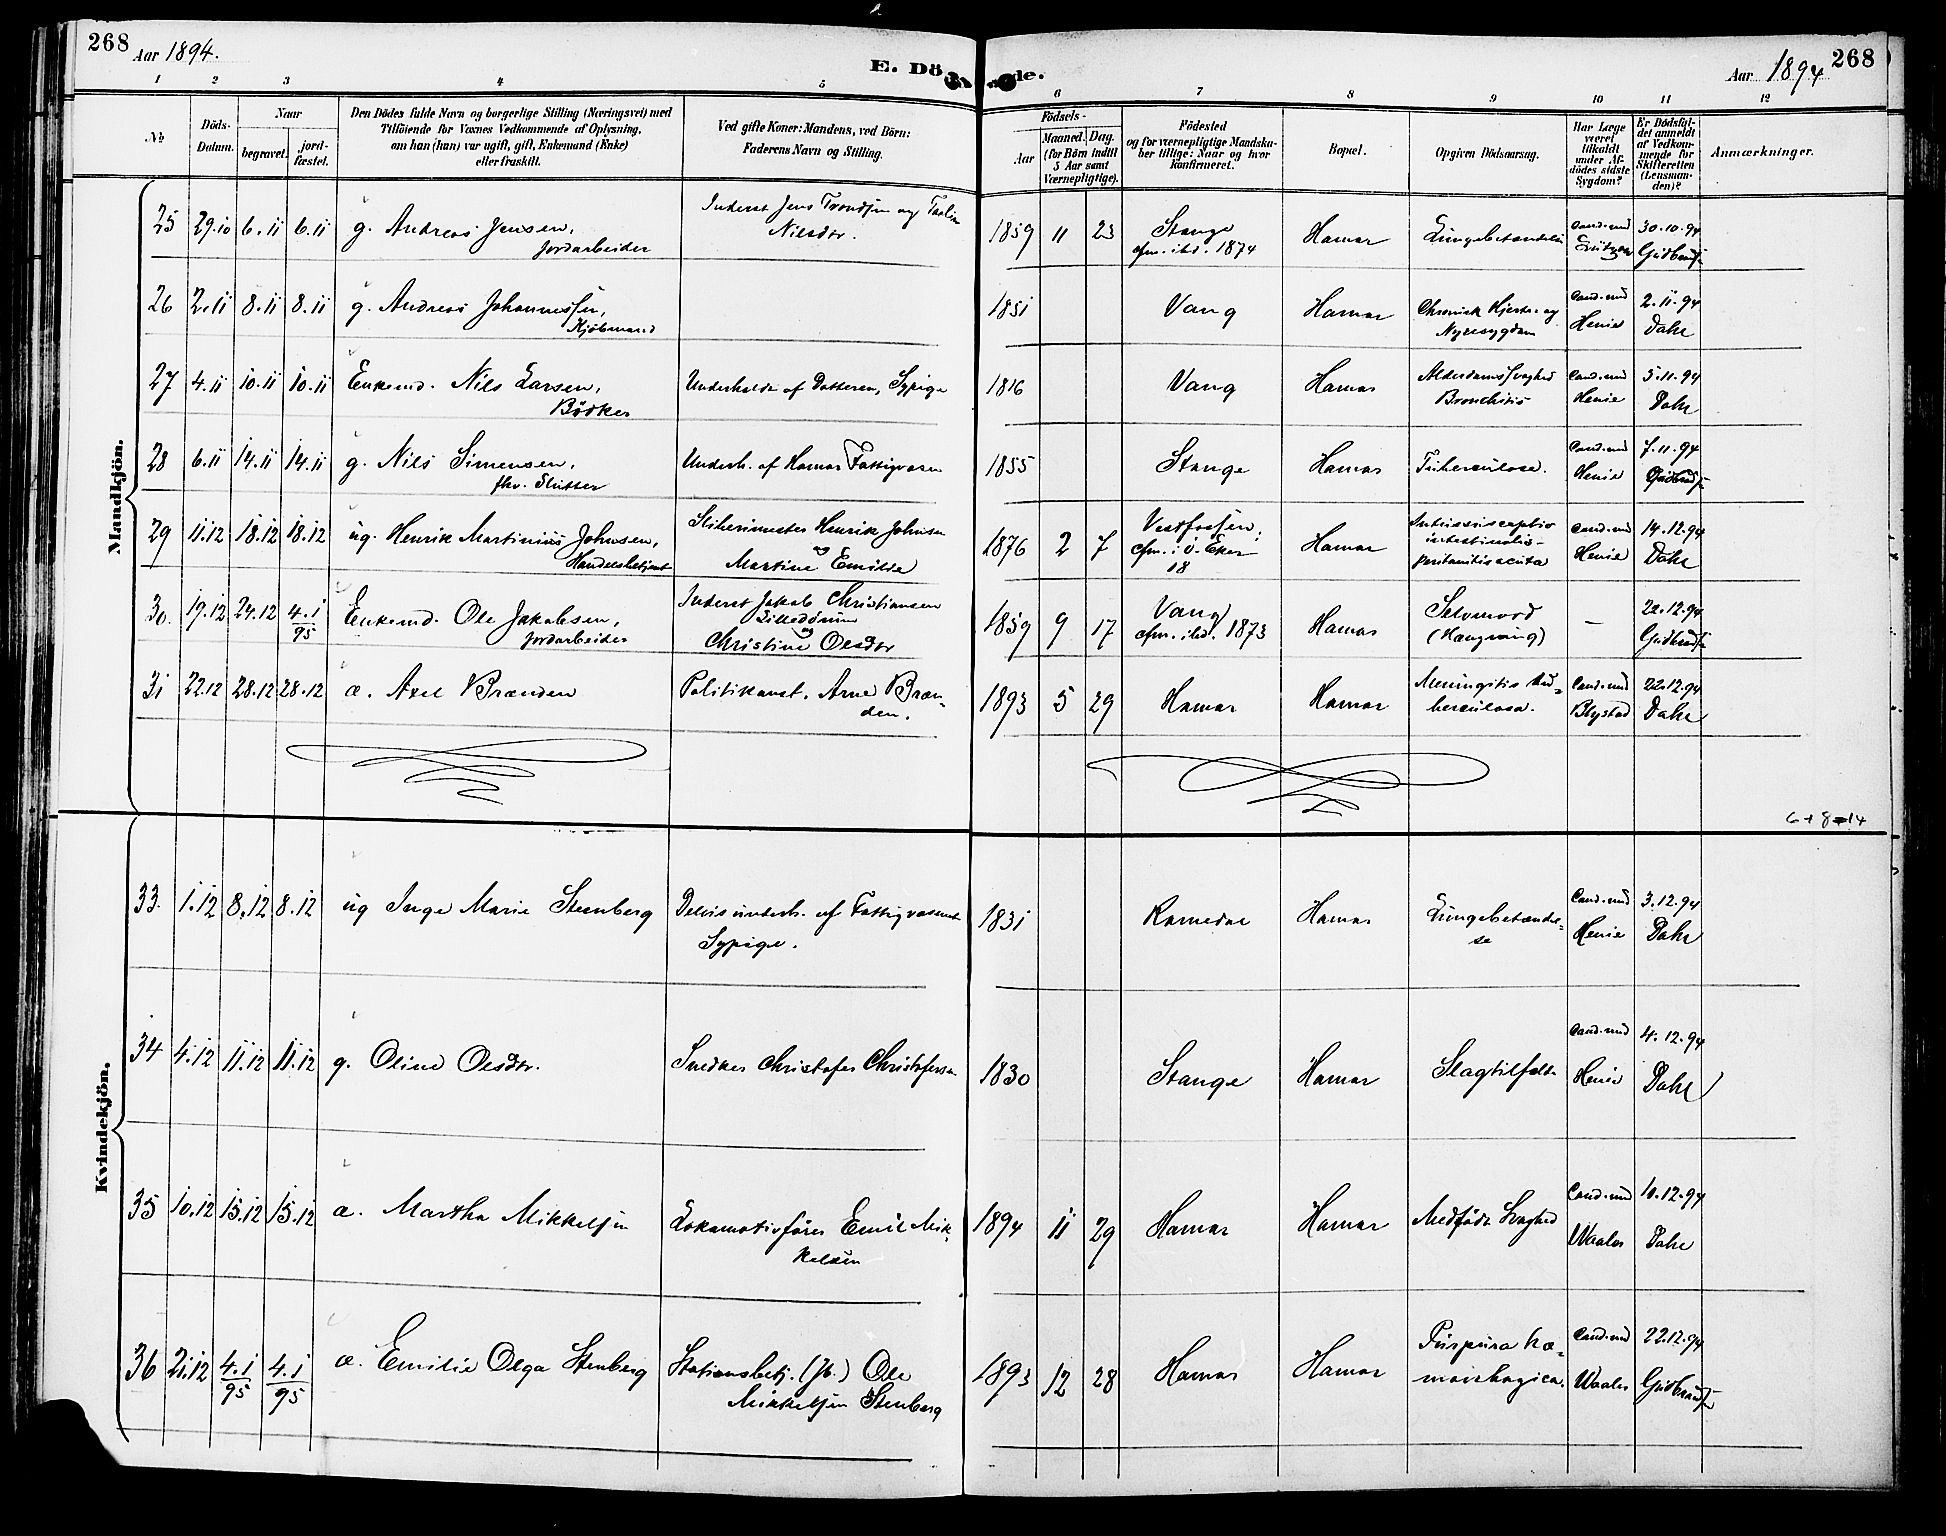 268
Aar 1894.
E. Dö
de.
Aar 1894
268
1 2 3 4 5 6 7 8 9 10 11 12
No
Döds-
Datum.
Naar
begravet.
jord-
fæstet.
Den Dödes fulde Navn og borgerlige Stilling (Næringsvei) med
Tilföiende for Voxnes Vedkommende af Oplysning,
om han (hun) var ugift, gift, Enkemand (Enke)
eller fraskilt.
Ved gifte Koner: Mandens, ved Börn:
Faderens Navn og Stilling.
Födsels-
Aar
Maaned. Dag.
(for Börn indtil
5 Aar samt
Værnepligtige).
Födested
og for værnepligtige Mandska-
ber tillige: Naar og hvor
konfirmeret.
Bopæl.
Opgiven Dödsaarsag.
Har Læge
været
tilkaldt
under Af-
dödes sidste
Sygdom?
Er Dödsfal-
det anmeldt
af Vedkom-
mende for
Skifteretten
(Lensman-
den)?
Anmærkninger.
Mandkjön.
25 29.10 6.11 6.11 g. Andreas Jensen,
Jordarbeider
Inderst Jens Trondsen og
Nilsdtr.
1859 11 23 Stange
cfm. ibd. 1874
Hamar Lungebetændelse Cand. med
30.10.94
Gudbrands
26 2.11 8.11 8.11 g. Andreas Johannessen,
Kjöbmand
1851 Vang Hamar Chronisk Hjerte- og
Nyresygdom
Cand. med
Henie
2.11.94
Dahl
27 4.11 10.11 10.11 Enkemd. Nils Larsen,
Bödker
Underholdt af Datteren, Sypige
1816 Vang Hamar Alderdomssvaghed
Bronchitis
Cand. med
Henie
5.11.94
Dahl
28 6.11 14.11 14.11 g. Nils Simensen,
fhv. Slutter
Underh. af Hamar Fattigvæsen
1855 Stange Hamar Tuberculose.
Cand. med
Henie
7.11.94
Gudbrands
29 11.12 18.12 18.12 ug. Henrik Martinius Johnsen,
Handelsbetjent
Sliberimester Henrik Johnsen
og
Martine Emilie
1876 2 7 Vestfossen,
cfm. i Ö. Eker
18
Hamar Intussusceptio
intestinalis-
peritonitis acuta
Cand. med
Henie
14.12.94
Dahl
30. 19.12 24.12 4.1
95
Enkemd. Ole Jakobsen,
Jordarbeider
Inderst Jakob Christiansen
og
Christine Olsdtr
1859 9 17 Vang
cfm. ibd. 1873
Hamar Selvmord
(Hængning)
-
22.12.94
Gudbrands
31 22.12 28.12 28.12 æ. Axel Brænden
Politikonst. Arne Bræn-
den.
1893 5 29 Hamar Hamar Meningitis tu-
berculosa.
Cand. med
Blystad
22.12.94
Dahl
6+8=14
Kvindekjön.
33. 1.12 8.12 8.12 ug Inge Marie Stenberg
Delvis underh. af Fattigvæsenet
Sypige.
1831 Romedal Hamar Lungebetændel-
se
Cand. med
Henie
3.12.94
Dahl
34 4.12 11.12 11.12 g. Oline Olsdtr.
Snedker Christofer Christofersen
1830 Stange Hamar Slagtilfælde
Cand. med
Henie
4.12.94
Dahl
35 10.12 15.12 15.12 æ. Martha Mikkelsen
Lokomotivförer Emil Mik-
kelsen
1894 11 29 Hamar Hamar Medfödt Svaghed
Cand. med
Waaler
10.12.94
Dahl
36 21.12 4.1
95
4.1
95
æ. Emilie Olga Stenberg
Stationsbetj. (Jb.) Ole
Mikkelsen Stenberg
1893 12 28 Hamar Hamar Purpura hæ-
morrhagica.
Cand. med
Waaler
22.12.94
Gudbrands